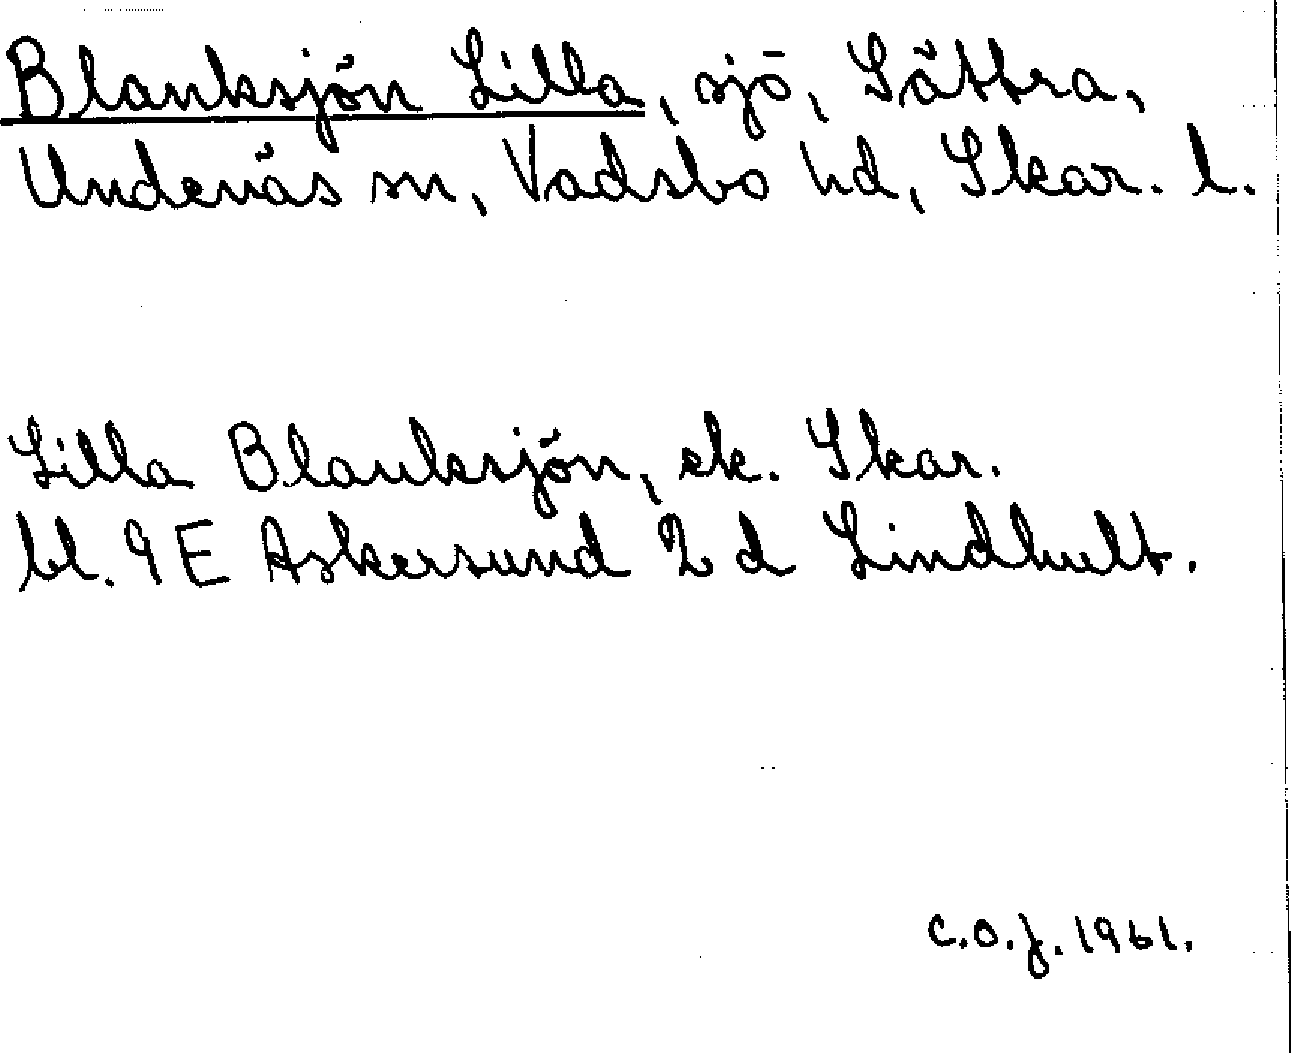 Blanksjön Lilla, sjö, Sätbra,
Undenäs sn, Vadsbo hd, Skar. l.
Lilla Blanksjön, ek. Skar.
bl. 9E Askersund 2 d Lindhult.
C.O.J. 1961.